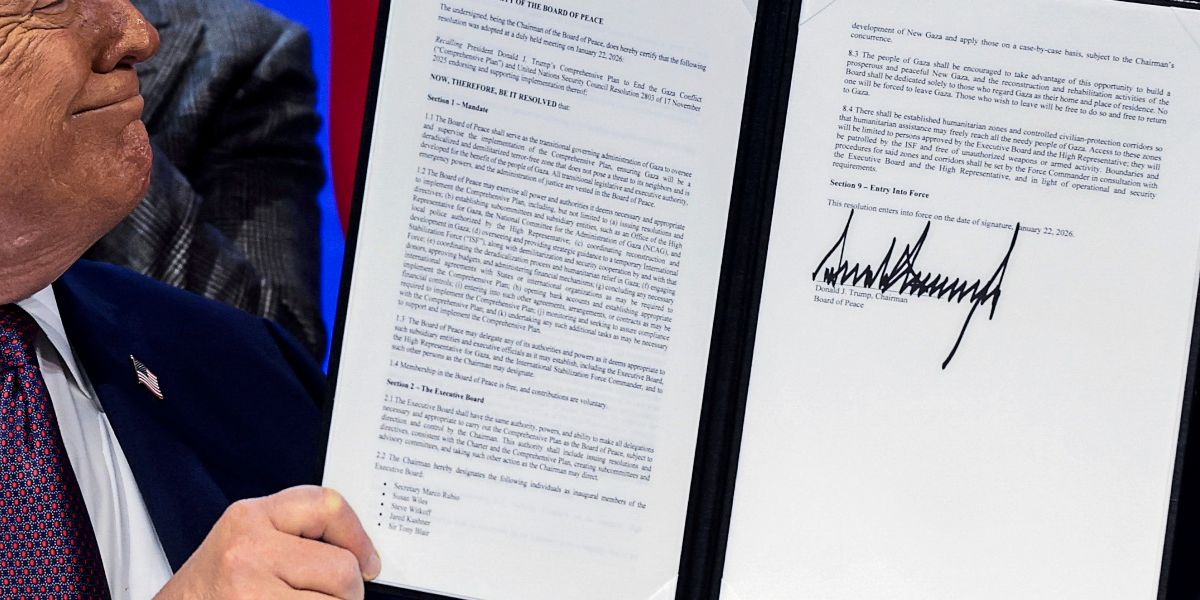 OF THE BOARD OF PEACE
The undersigned, being the Chairman of the Board of Peace, does hereby certify that the following
resolution was adopted at a duly held meeting on January 22, 2026:
Recalling President Donald J. Trump's Comprehensive Plan to End the Gaza Conflict
("Comprehensive Plan") and United Nations Security Council Resolution 2803 of 17 November
2025 endorsing and supporting implementation thereof;
NOW, THEREFORE, BE IT RESOLVED that:
Section 1 – Mandate
1.1 The Board of Peace shall serve as the transitional governing administration of Gaza to oversee
and supervise the implementation of the Comprehensive Plan, ensuring Gaza will be a
deradicalized and demilitarized terror-free zone that does not pose a threat to its neighbors and is
developed for the benefit of the people of Gaza. All transitional legislative and executive authority,
emergency powers, and the administration of justice are vested in the Board of Peace.
1.2 The Board of Peace may exercise all power and authorities it deems necessary and appropriate
to implement the Comprehensive Plan, including, but not limited to (a) issuing resolutions and
directives; (b) establishing subcommittees and subsidiary entities, such as an Office of the High
Representative for Gaza, the National Committee for the Administration of Gaza (NCAG), and
local police authorized by the High Representative; (c) coordinating reconstruction and
development in Gaza; (d) overseeing and providing strategic guidance to a temporary International
Stabilization Force ("ISF"), along with demilitarization and security cooperation by and with that
Force; (e) coordinating the deradicalization process and humanitarian relief in Gaza; (f) engaging
donors, approving budgets, and administering financial mechanisms; (g) concluding any necessary
international agreements with States or international organizations as may be required to
implement the Comprehensive Plan; (h) opening bank accounts and establishing appropriate
financial controls; (i) entering into such other agreements, arrangements, or contracts as may be
required to implement the Comprehensive Plan; (j) monitoring and seeking to assure compliance
with the Comprehensive Plan; and (k) undertaking any such additional tasks as may be necessary
to support and implement the Comprehensive Plan.
1.3 The Board of Peace may delegate any of its authorities and powers as it deems appropriate to
such subsidiary entities and executive officials as it may establish, including the Executive Board,
the High Representative for Gaza, and the International Stabilization Force Commander, and to
such other persons as the Chairman may designate.
1.4 Membership in the Board of Peace is free, and contributions are voluntary.
Section 2 – The Executive Board
2.1 The Executive Board shall have the same authority, powers, and ability to make all delegations
necessary and appropriate to carry out the Comprehensive Plan as the Board of Peace, subject to
direction and control by the Chairman. This authority shall include issuing resolutions and
directives, consistent with the Charter and the Comprehensive Plan, creating subcommittees and
advisory committees, and taking such other action as the Chairman may direct.
2.2 The Chairman hereby designates the following individuals as inaugural members of the
Executive Board:
• Secretary Marco Rubio
• Susan Wiles
• Steve Witkoff
• Jared Kushner
• Sir Tony Blair
development of New Gaza and apply those on a case-by-case basis, subject to the Chairman's
concurrence.
8.3 The people of Gaza shall be encouraged to take advantage of this opportunity to build a
prosperous and peaceful New Gaza, and the reconstruction and rehabilitation activities of the
Board shall be dedicated solely to those who regard Gaza as their home and place of residence. No
one will be forced to leave Gaza. Those who wish to leave will be free to do so and free to return
to Gaza.
8.4 There shall be established humanitarian zones and controlled civilian-protection corridors so
that humanitarian assistance may freely reach all the needy people of Gaza. Access to these zones
will be limited to persons approved by the Executive Board and the High Representative; they will
be patrolled by the ISF and free of unauthorized weapons or armed activity. Boundaries and
procedures for said zones and corridors shall be set by the Force Commander in consultation with
the Executive Board and the High Representative, and in light of operational and security
requirements.
Section 9 – Entry Into Force
This resolution enters into force on the date of signature, January 22, 2026.
Donald J. Trump, Chairman
Board of Peace